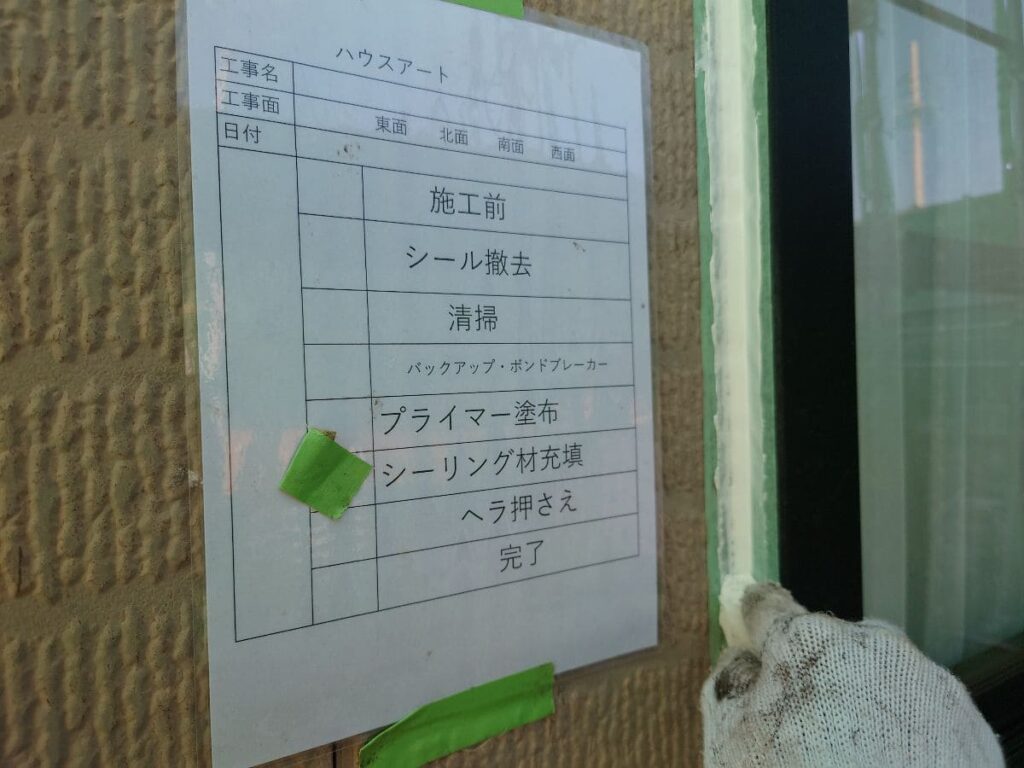 ハウスアート
工事名
工事面
東面 北面 南面 西面
日付
施工前
シール撤去
清掃
バックアップ・ボンドブレーカー
プライマー塗布
シーリング材充填
ヘラ押さえ
完了